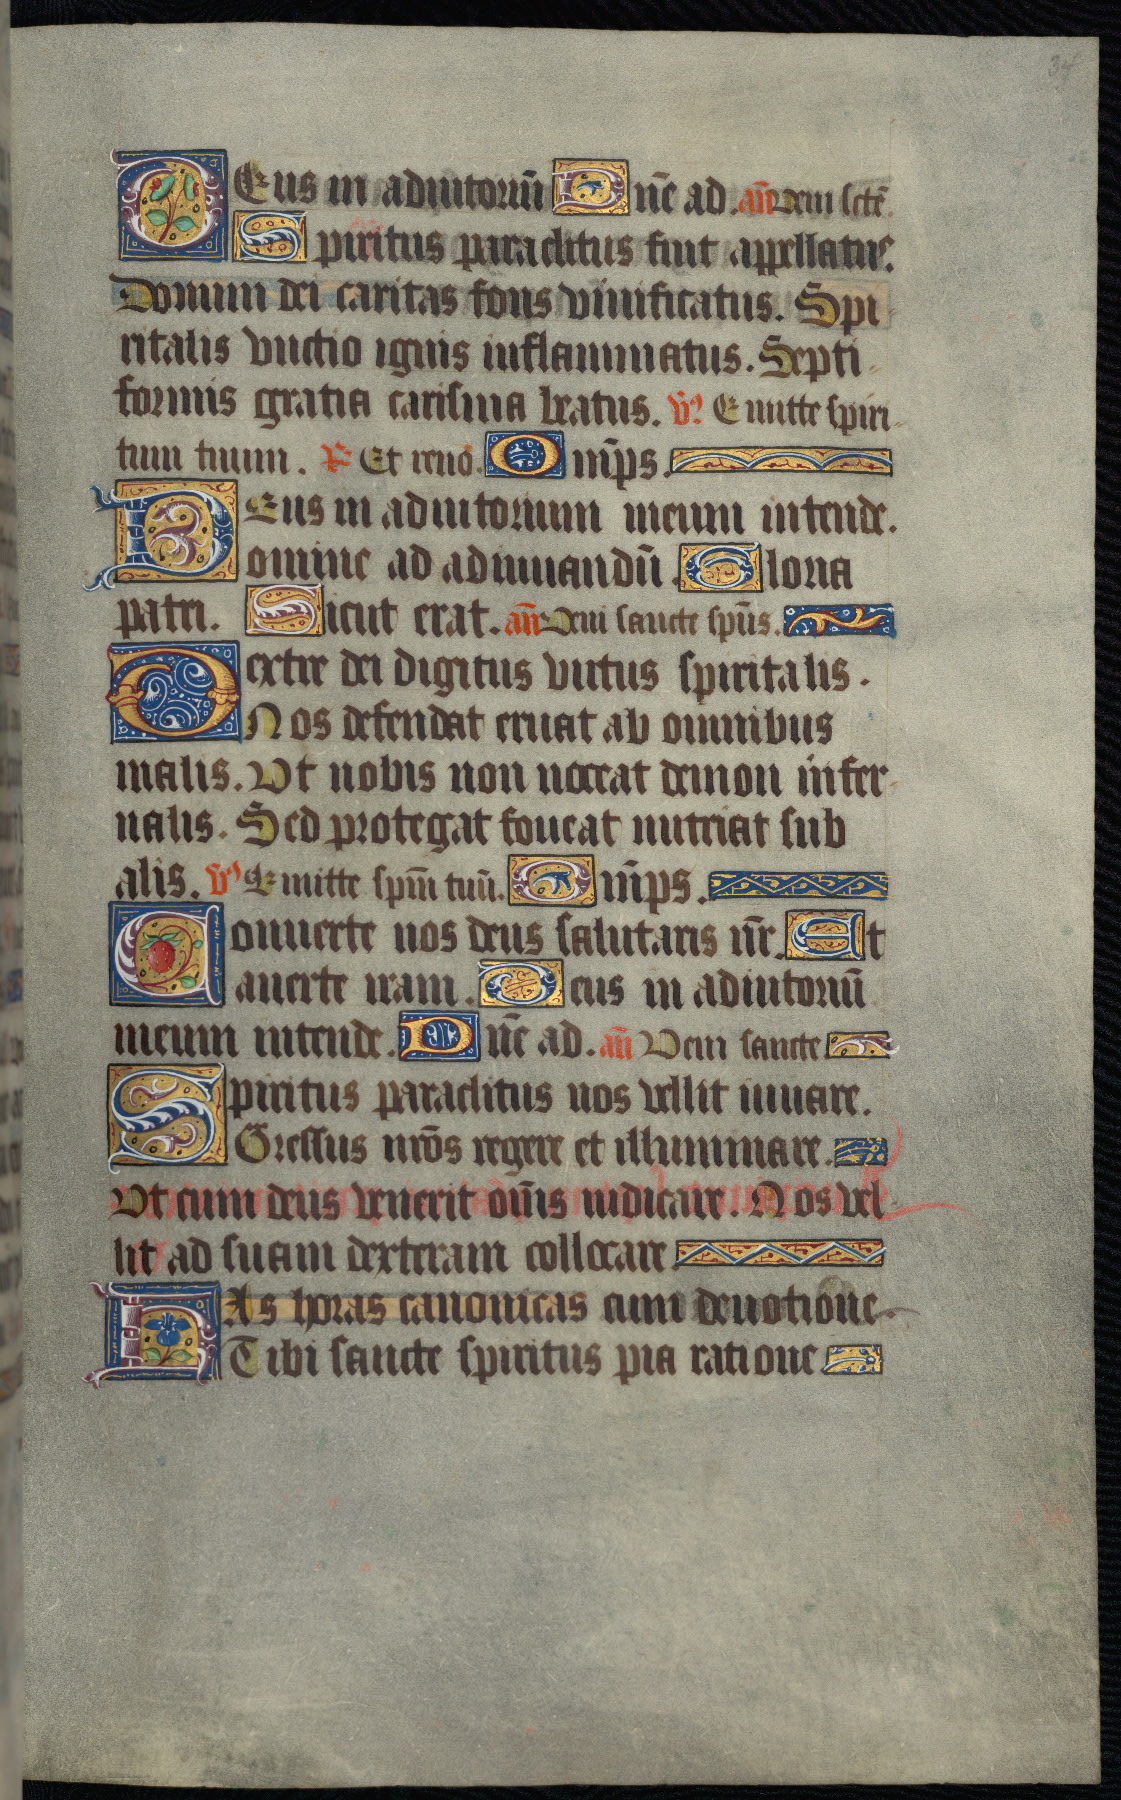 34
Deus in adiutoriū Dn̄e ad. an̄ Veni sctē
Spiritus paraclitus fuit appellatus.
Donum dei caritas fons viuificatus. Spi-
ritalis vnctio ignis inflammatus. Septi-
formis gratia carisma beatus. v̄ Emitte spiri-
tum tuum. R Et renō. Om̄ps.
Deus in adiutorium meum intende.
Domine ad adiuuandū. Gloria
patri. Sicut erat. an̄ Veni sancte sp̄us.
Dextre dei digitus virtus spiritalis.
Nos defendat eruat ab omnibus
malis. Vt nobis non noceat demon infer-
nalis. Sed protegat foueat nutriat sub
alis. v̄ Emitte sp̄m tuū. Om̄ps.
Conuerte nos deus salutaris nr̄. Et
auerte iram. Deus in adiutoriū
meum intende. Dn̄e ad. an̄ Veni sancte
Spiritus paraclitus nos vellit iuuare.
Gressus nr̄os regere et illuminare.
Vt cum deus venerit om̄is iudicare. Nos vel-
lit ad suam dexteram collocare.
Has horas canonicas cum deuotione
Tibi sancte spiritus pia ratione